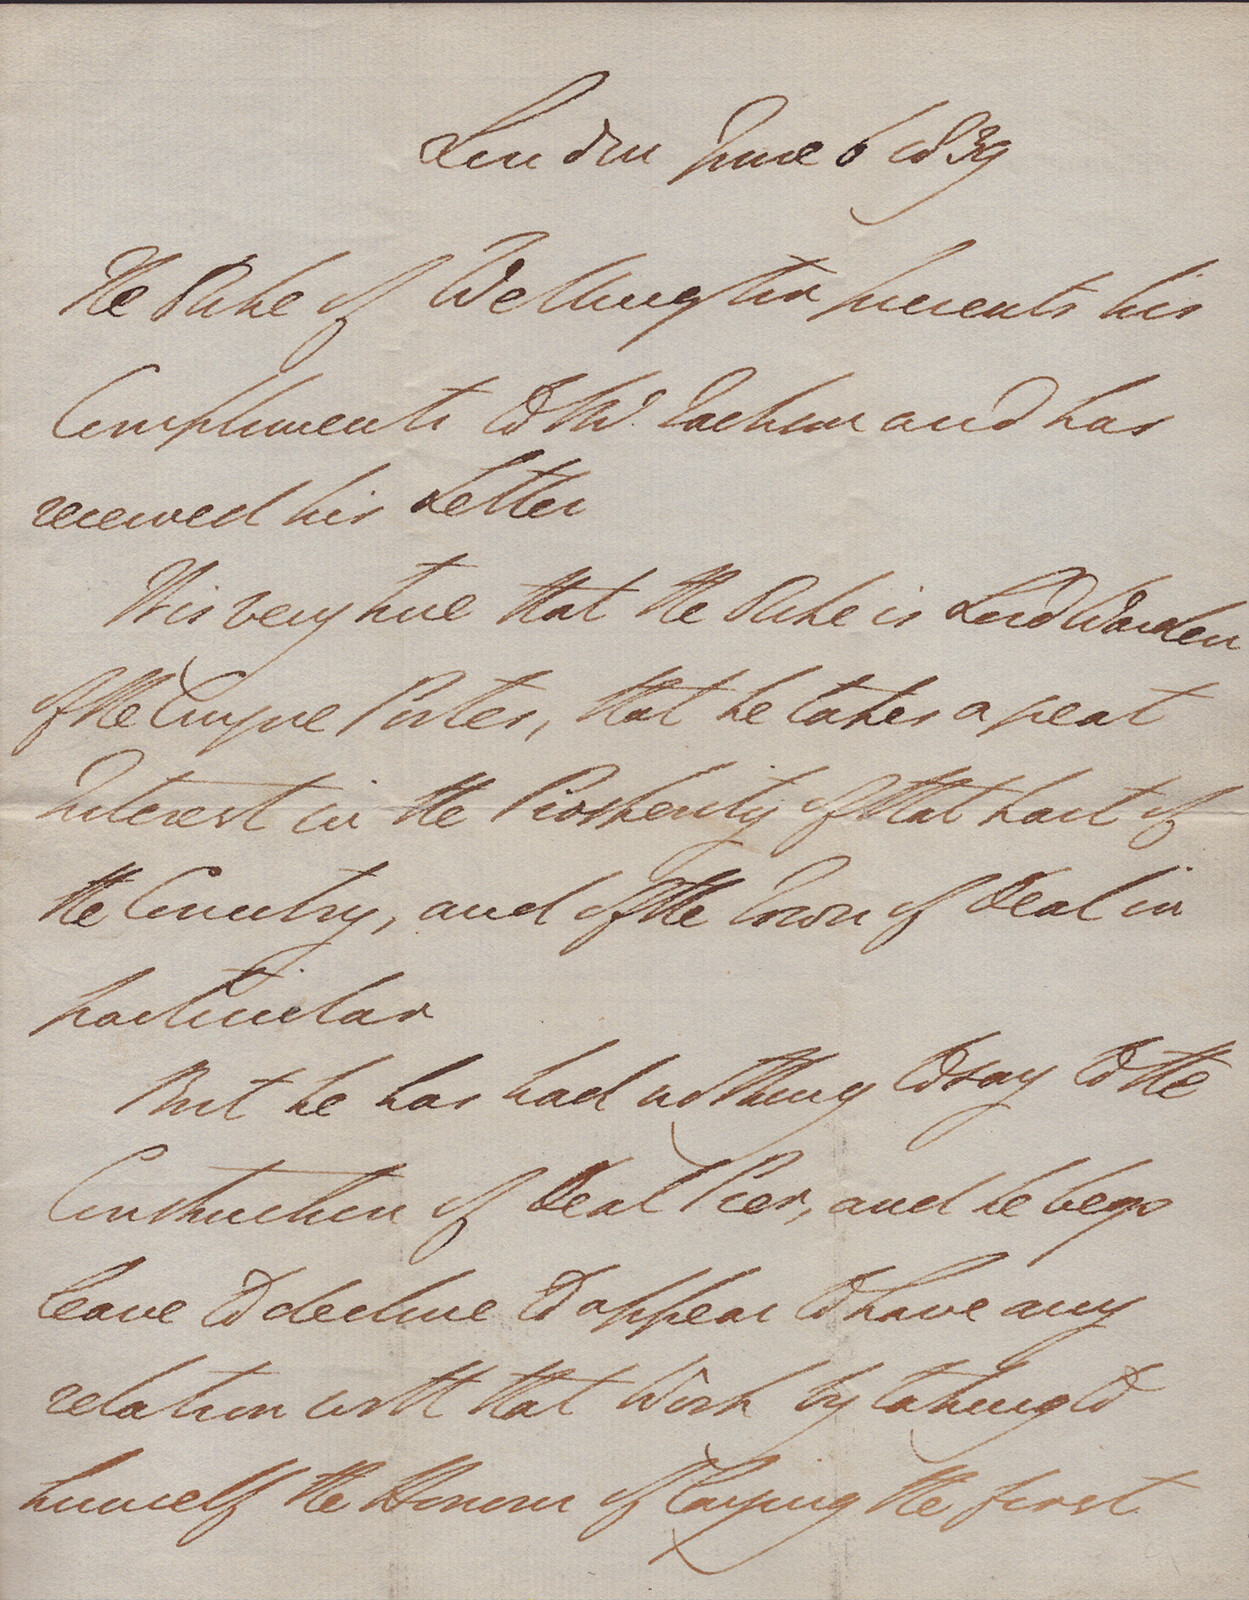 London June 6 1839
The Duke of Wellington presents his
Compliments to Mr. and has
received his Letter
It is very true that the Duke is Lord Warden
of the Cinque Portes, that he takes a great
Interest in the Prosperity of that part of
the Country, and of the Town of Deal in
particular
But he has had nothing to say to the
Construction of Deal Pier, and he begs
leave to decline to appear to have any
relation with that Work by taking to
himself the Honour of laying the first